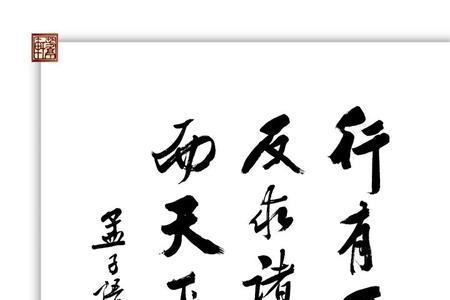 行有
反求諸
而天
孟子語